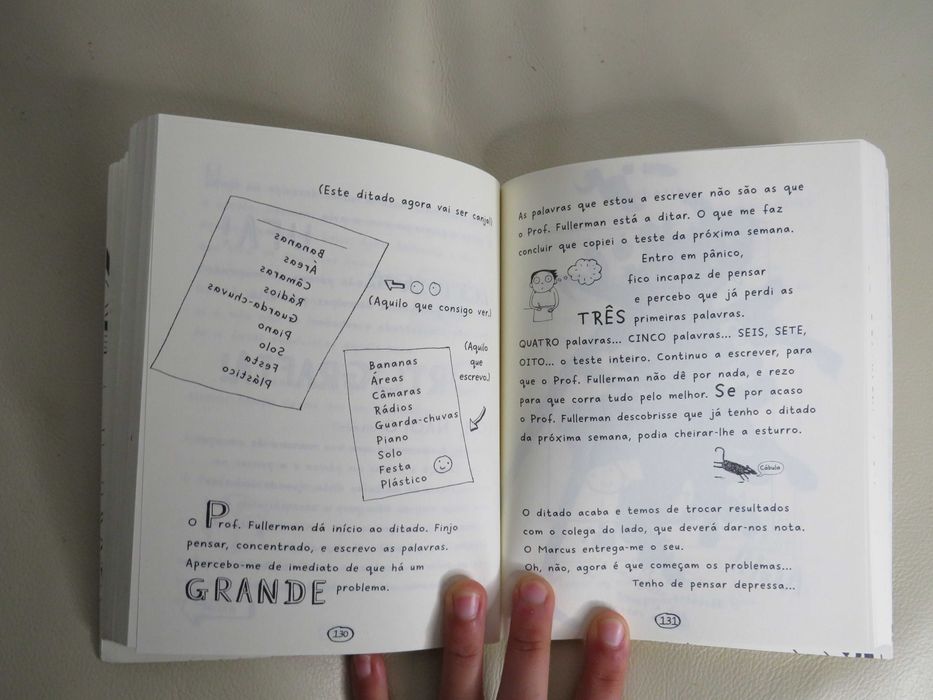 (Este ditado agora vai ser canja!)
Bananas
Áreas
Câmaras
Rádios
Guarda-chuvas
Piano
Solo
Festa
Plástico
(Aquilo que consigo ver.)
(Aquilo
que
escrevo.)
Bananas
Áreas
Câmaras
Rádios
Guarda-chuvas
Piano
Solo
Festa
Plástico
O Prof. Fullerman dá início ao ditado. Finjo
pensar, concentrado, e escrevo as palavras.
Apercebo-me de imediato de que há um
GRANDE problema.
130
As palavras que estou a escrever não são as que
o Prof. Fullerman está a ditar. O que me faz
concluir que copiei o teste da próxima semana.
Entro em pânico,
fico incapaz de pensar
e percebo que já perdi as
TRÊS primeiras palavras.
QUATRO palavras... CINCO palavras... SEIS, SETE,
OITO... o teste inteiro. Continuo a escrever, para
que o Prof. Fullerman não dê por nada, e rezo
para que corra tudo pelo melhor. Se por acaso
o Prof. Fullerman descobrisse que já tenho o ditado
da próxima semana, podia cheirar-lhe a esturro.
Cábula
O ditado acaba e temos de trocar resultados
com o colega do lado, que deverá dar-nos nota.
O Marcus entrega-me o seu.
Oh, não, agora é que começam os problemas...
Tenho de pensar depressa...
131